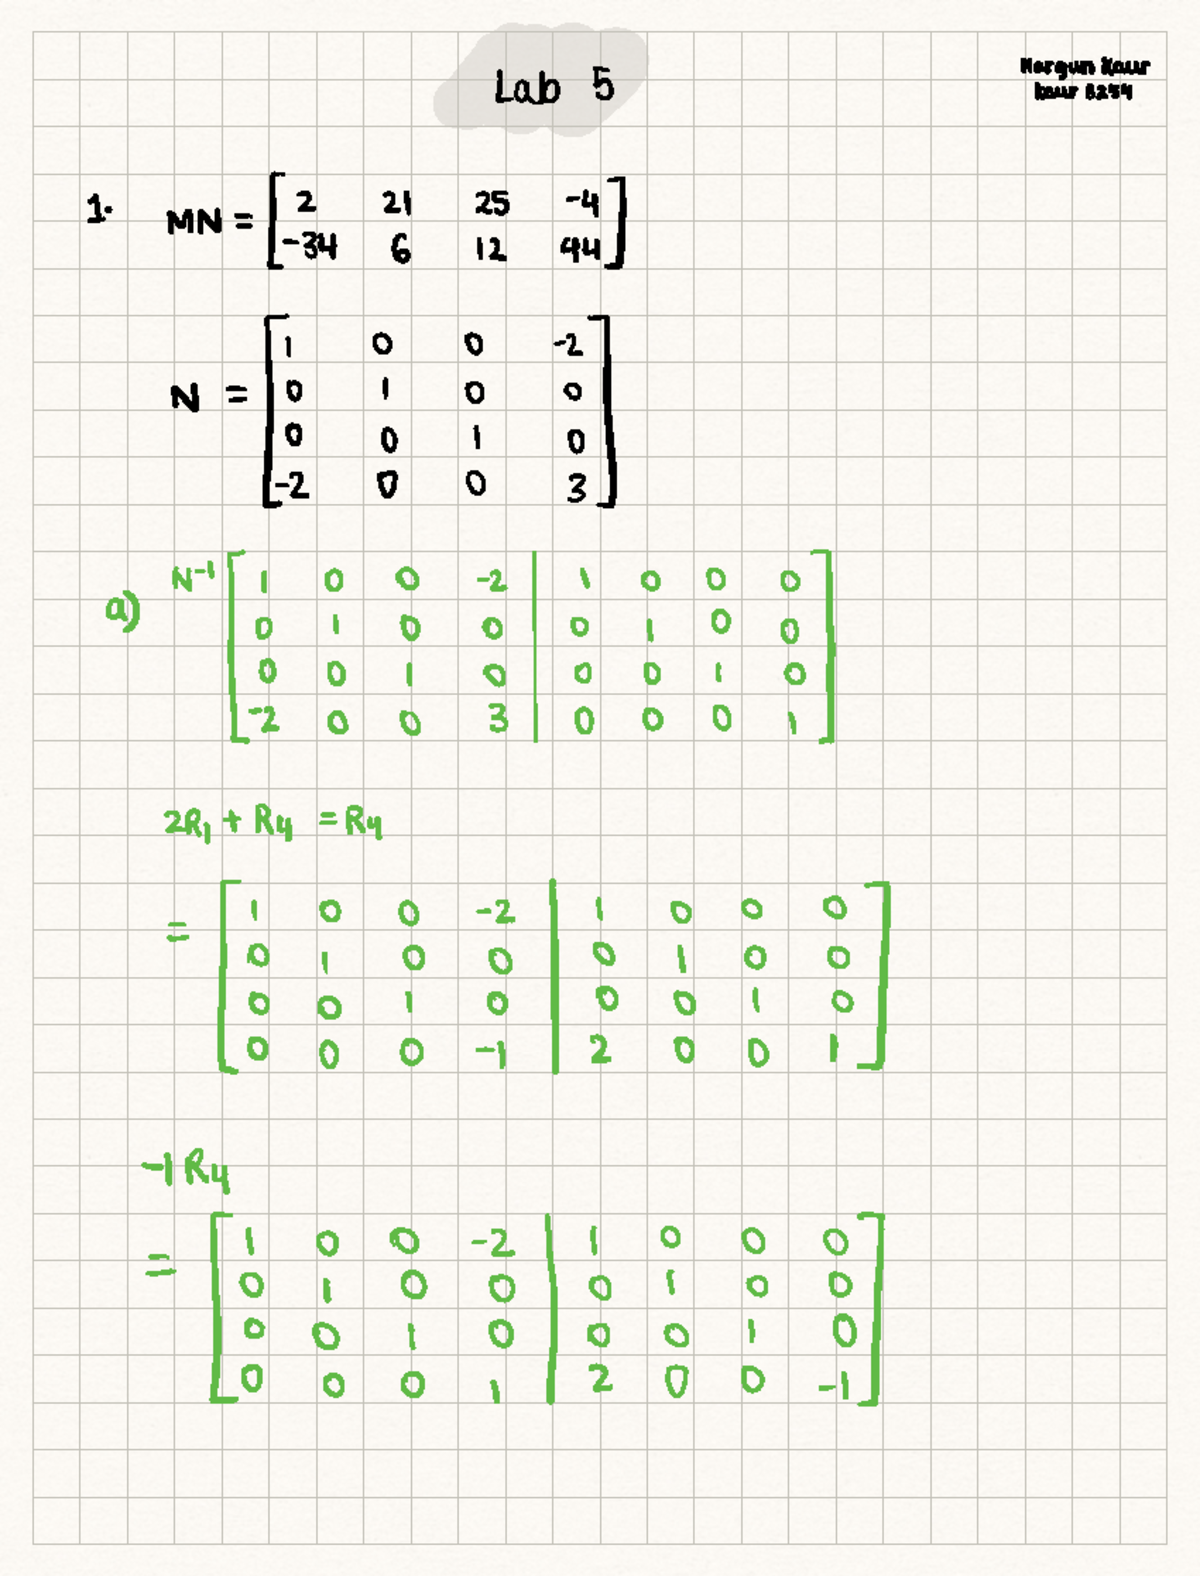 Lab 5
Kaur
1.
MN = [ 2 21 25 -4 ]
[ -34 6 12 94 ]
N = [ 1 0 0 -2 ]
[ 0 1 0 0 ]
[ 0 0 1 0 ]
[ -2 0 0 3 ]
a) N⁻¹ [ 1 0 0 -2 | 1 0 0 0 ]
[ 0 1 0 0 | 0 1 0 0 ]
[ 0 0 1 0 | 0 0 1 0 ]
[ -2 0 0 3 | 0 0 0 1 ]
2R₁ + R₄ = R₄
= [ 1 0 0 -2 | 1 0 0 0 ]
[ 0 1 0 0 | 0 1 0 0 ]
[ 0 0 1 0 | 0 0 1 0 ]
[ 0 0 0 -1 | 2 0 0 1 ]
-1 R₄
= [ 1 0 0 -2 | 1 0 0 0 ]
[ 0 1 0 0 | 0 1 0 0 ]
[ 0 0 1 0 | 0 0 1 0 ]
[ 0 0 0 1 | 2 0 0 -1 ]